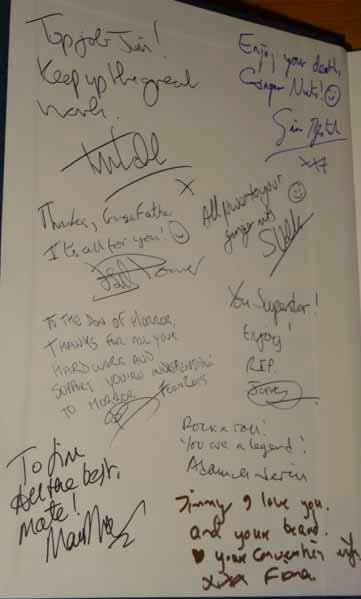 Top job Jim!
Keep up the great
work.
x
Enjoy your death,
Ginger Nuts! ☺
xx
Thanks,
It's all for you! ☺
All power to your
ginger nuts ☺
TO THE DON OF HORROR,
THANKS FOR ALL YOUR
HARD WORK AND
SUPPORT. YOU'RE
TO HORROR
You Superstar!
Enjoy!
R.I.P.
Rock n roll!
You are a legend!
To Jim
All the best,
mate!
Jimmy I love you.
and your beard.
♥ your convention wife
xxx Fiona